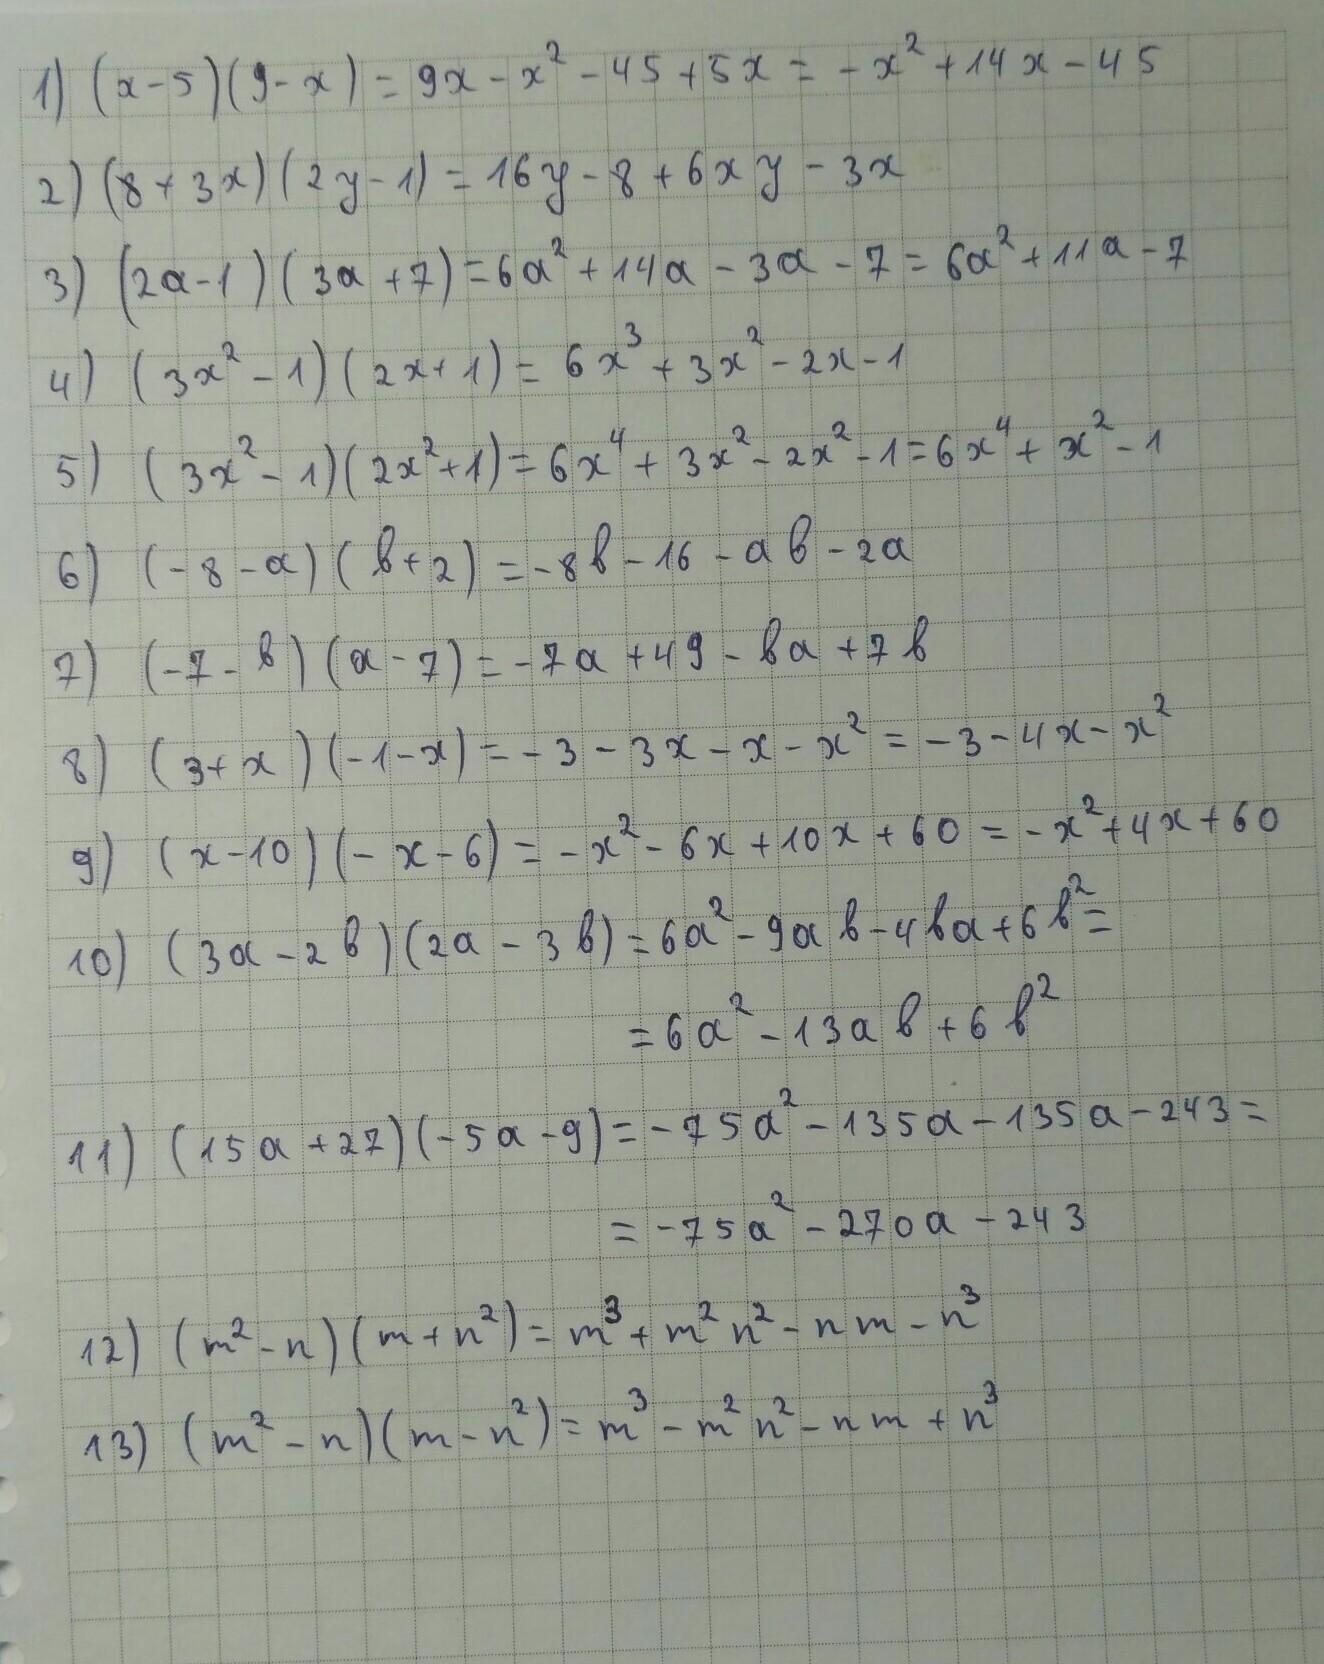 1) (x-5)(9-x) = 9x - x² - 45 + 5x = - x² + 14x - 45
2) (8 + 3x)(2y - 1) = 16y - 8 + 6xy - 3x
3) (2a-1)(3a+7) = 6a² + 14a - 3a - 7 = 6a² + 11a - 7
4) (3x² - 1)(2x+1) = 6x³ + 3x² - 2x - 1
5) (3x² - 1)(2x²+1) = 6x⁴ + 3x² - 2x² - 1 = 6x⁴ + x² - 1
6) (-8 - a)(b+2) = -8b - 16 - ab - 2a
7) (-7 - b)(a - 7) = -7a + 49 - ba + 7b
8) (3+x)(-1-x) = -3 - 3x - x - x² = -3 - 4x - x²
9) (x-10)(-x-6) = -x² - 6x + 10x + 60 = -x² + 4x + 60
10) (3a - 2b)(2a - 3b) = 6a² - 9ab - 4ba + 6b² =
= 6a² - 13ab + 6b²
11) (15a + 27)(-5a - 9) = -75a² - 135a - 135a - 243 =
= -75a² - 270a - 243
12) (m² - n)(m + n²) = m³ + m²n² - nm - n³
13) (m² - n)(m - n²) = m³ - m²n² - nm + n³